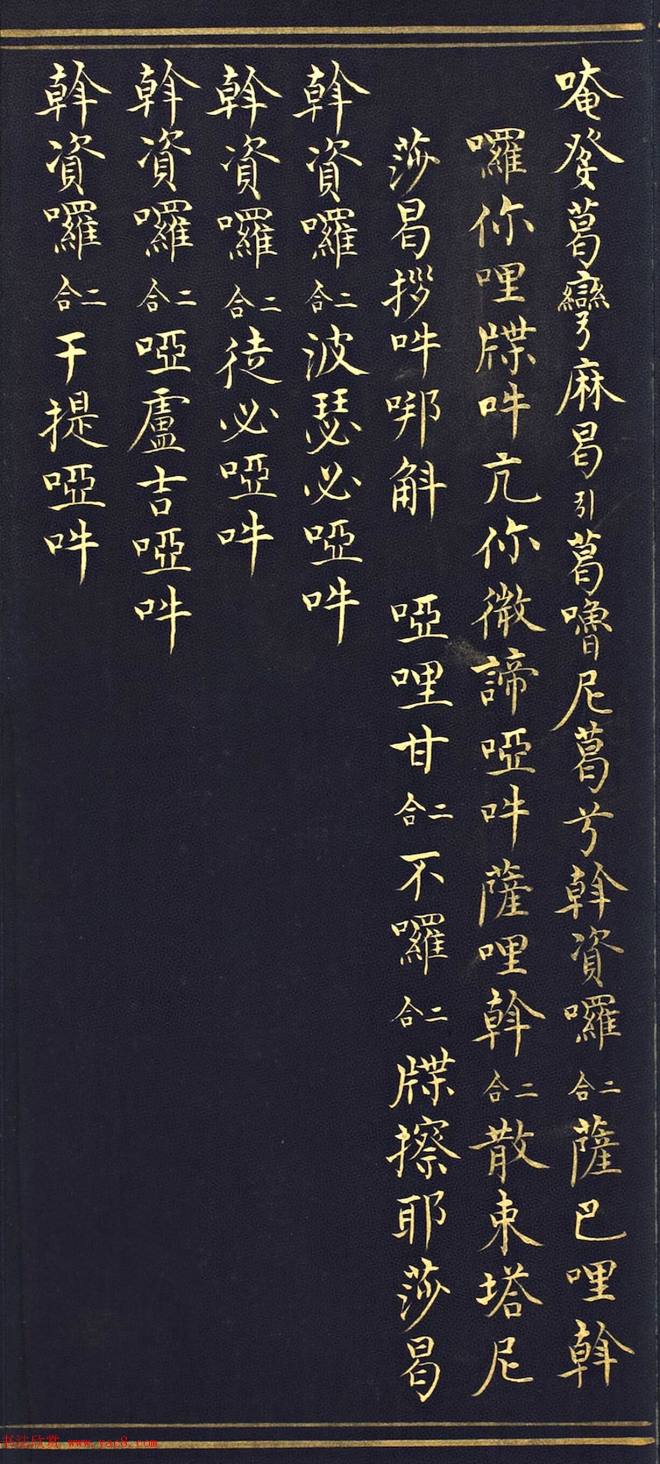 唵癹葛彎麻曷引葛嚕尼葛兮斡資囉二合薩巴哩斡
囉你哩牒吽亢你微諦啞吽薩哩斡二合散東塔尼
莎曷拶吽啣斛 啞哩甘二合不囉二合牒擦耶莎曷
斡資囉二合波瑟必啞吽
斡資囉二合徒必啞吽
斡資囉二合啞盧吉啞吽
斡資囉二合干提啞吽
书法欣赏 www.yac8.com